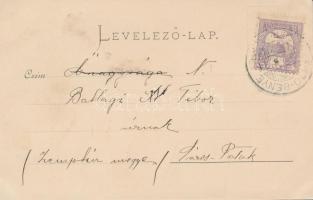 LEVELEZŐ-LAP.
Czím Őnagysága N.
Ballagi Tibor
úrnak
(Zemplén megye) Sáros-Patak